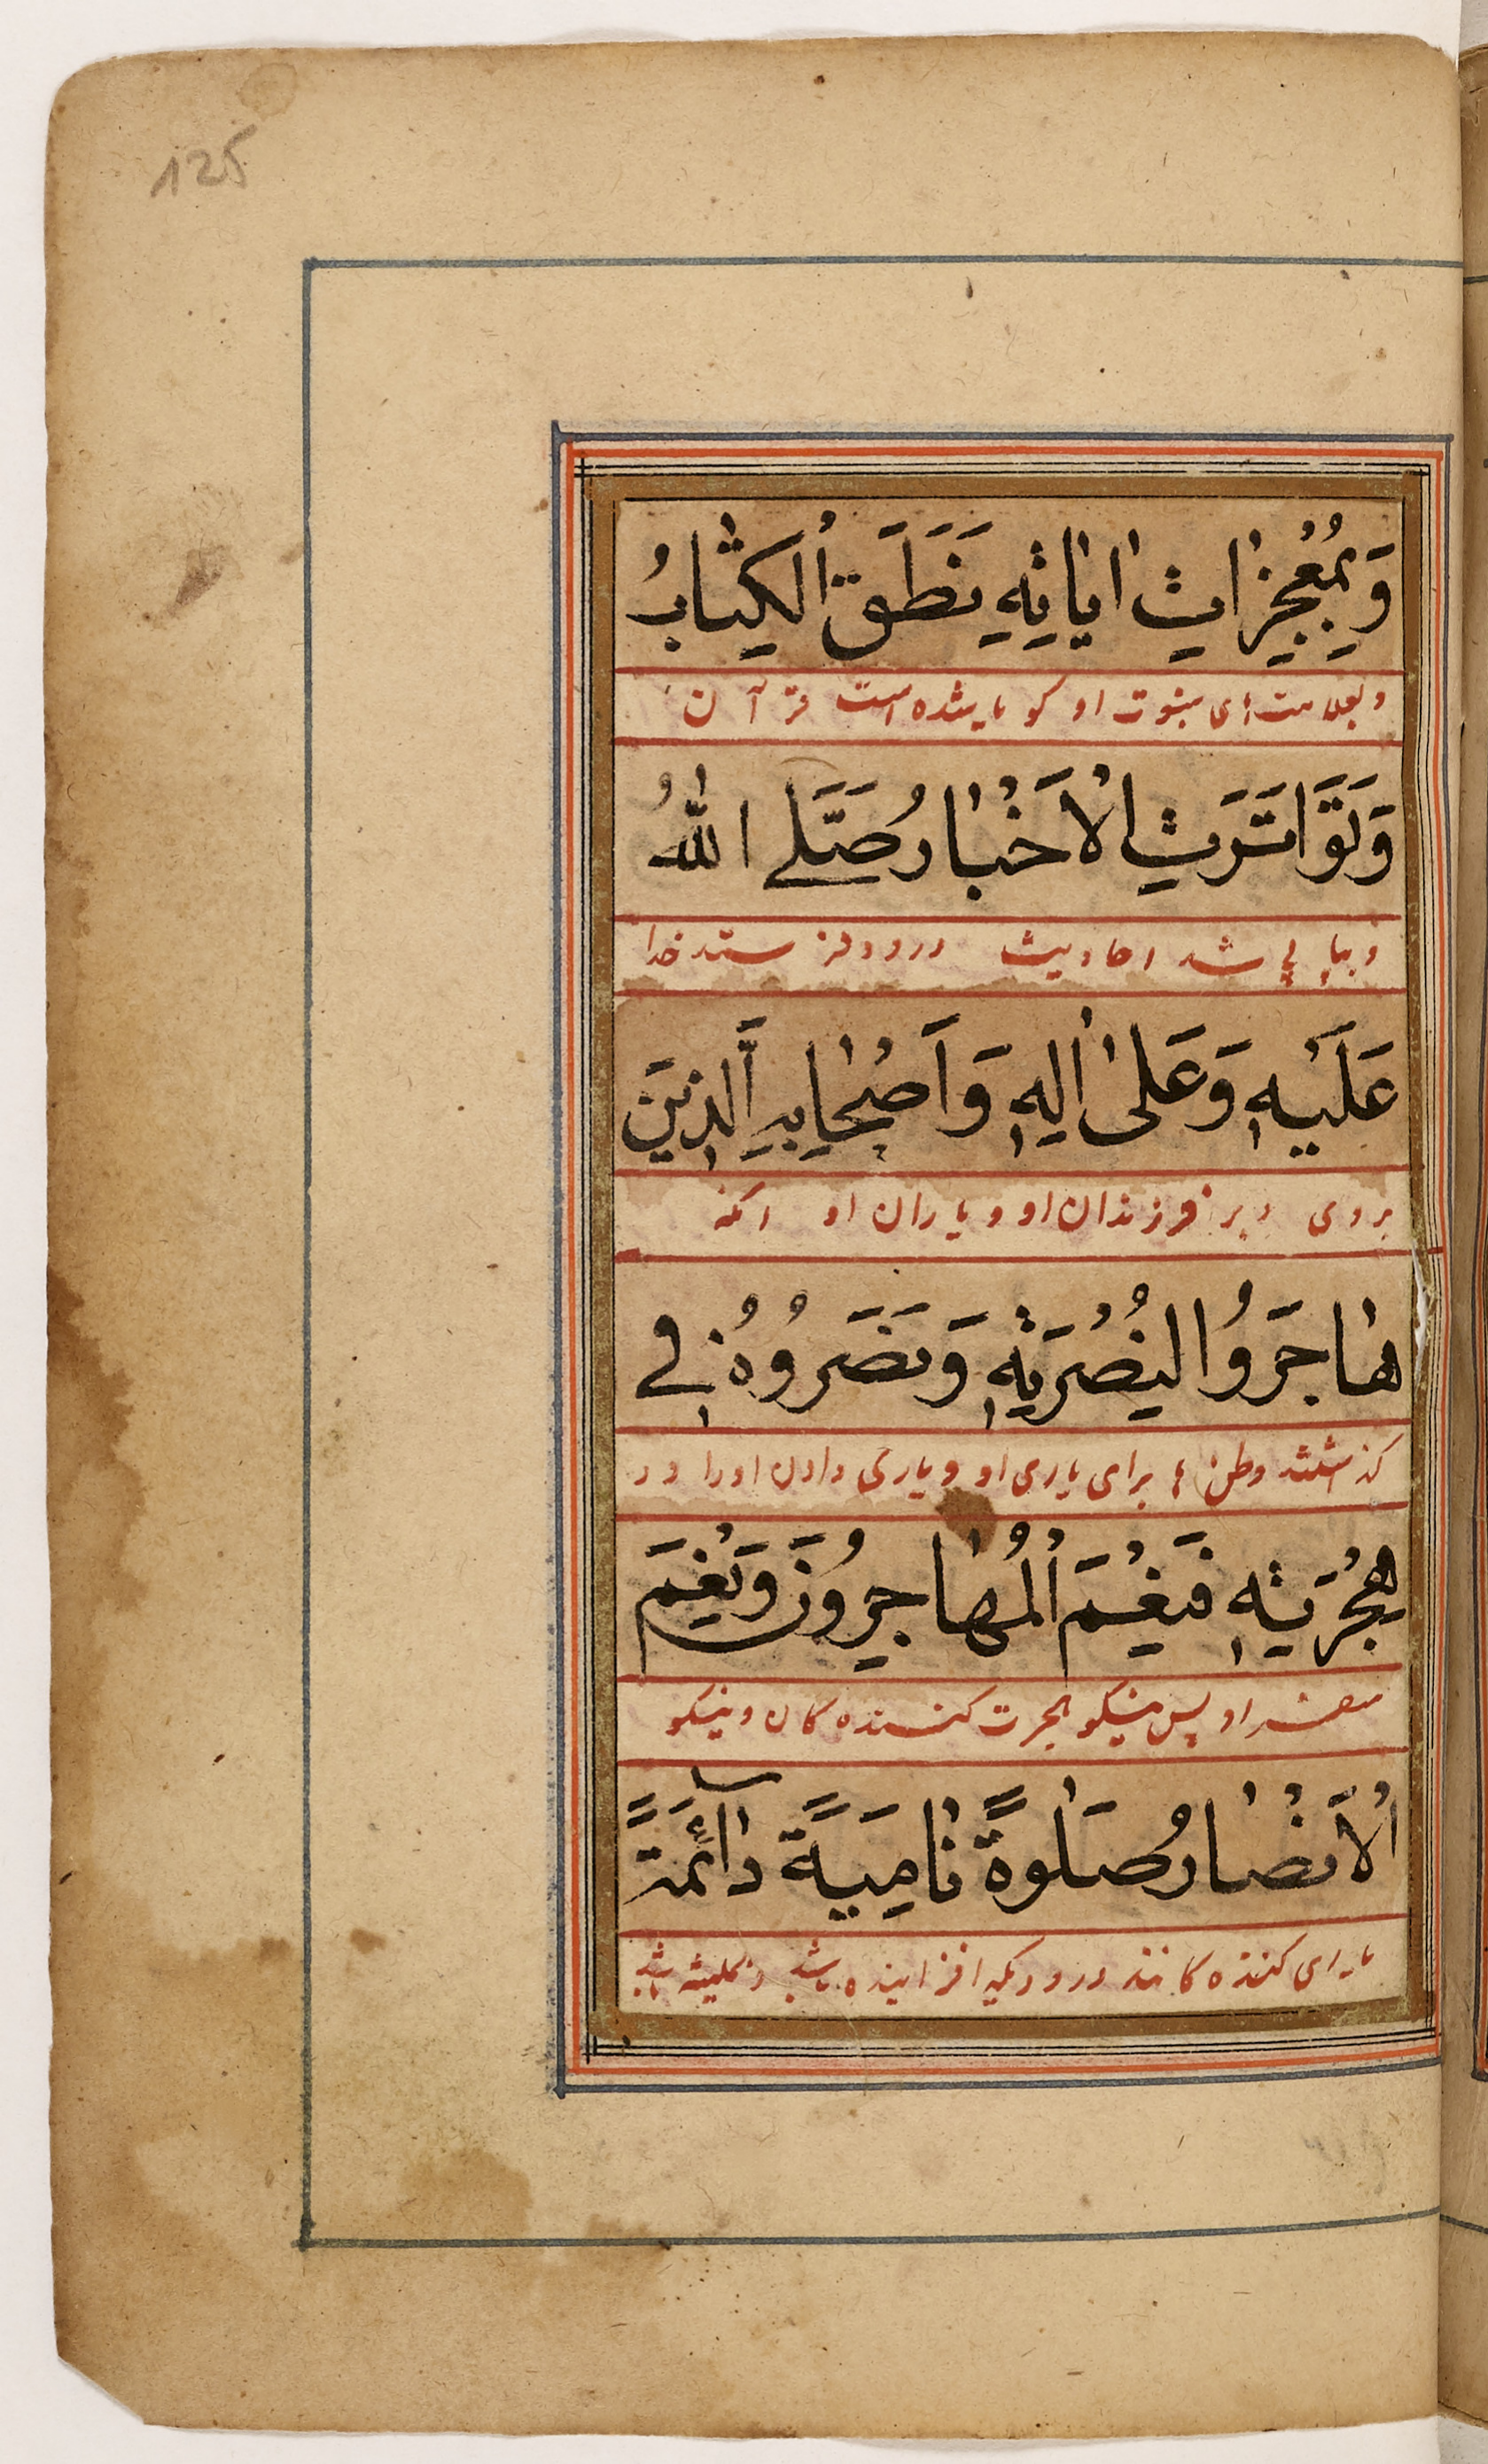 125
وَبِمُعْجِزَاتِ اٰيَاتِهِ نَطَقَ الْكِتَابُ
وبعلامت های نبوت او کویا شده است قرآن
وَتَوَاتَرَتِ الْاَخْبَارُ صَلَّى اللهُ
وپیاپی شد احادیث درود فرستد خدا
عَلَيْهِ وَعَلٰى اٰلِهِ وَاَصْحَابِهِ الَّذِينَ
بروی وبر فرزندان او و یاران او آنکه
هَاجَرُوا لِنُصْرَتِهِ وَنَصَرُوهُ فِي
کذاشتند وطن ها برای یاری او و یاری دادن اورا در
هِجْرَتِهِ فَنِعْمَ الْمُهَاجِرُونَ وَنِعْمَ
او پس نیکو هجرت کننده کان ونیکو
الْاَنْصَارُ صَلٰوةً نَامِيَةً دَائِمَةً
یاری کننده کانند درودیکه افزاینده باشد وهمیشه باشد